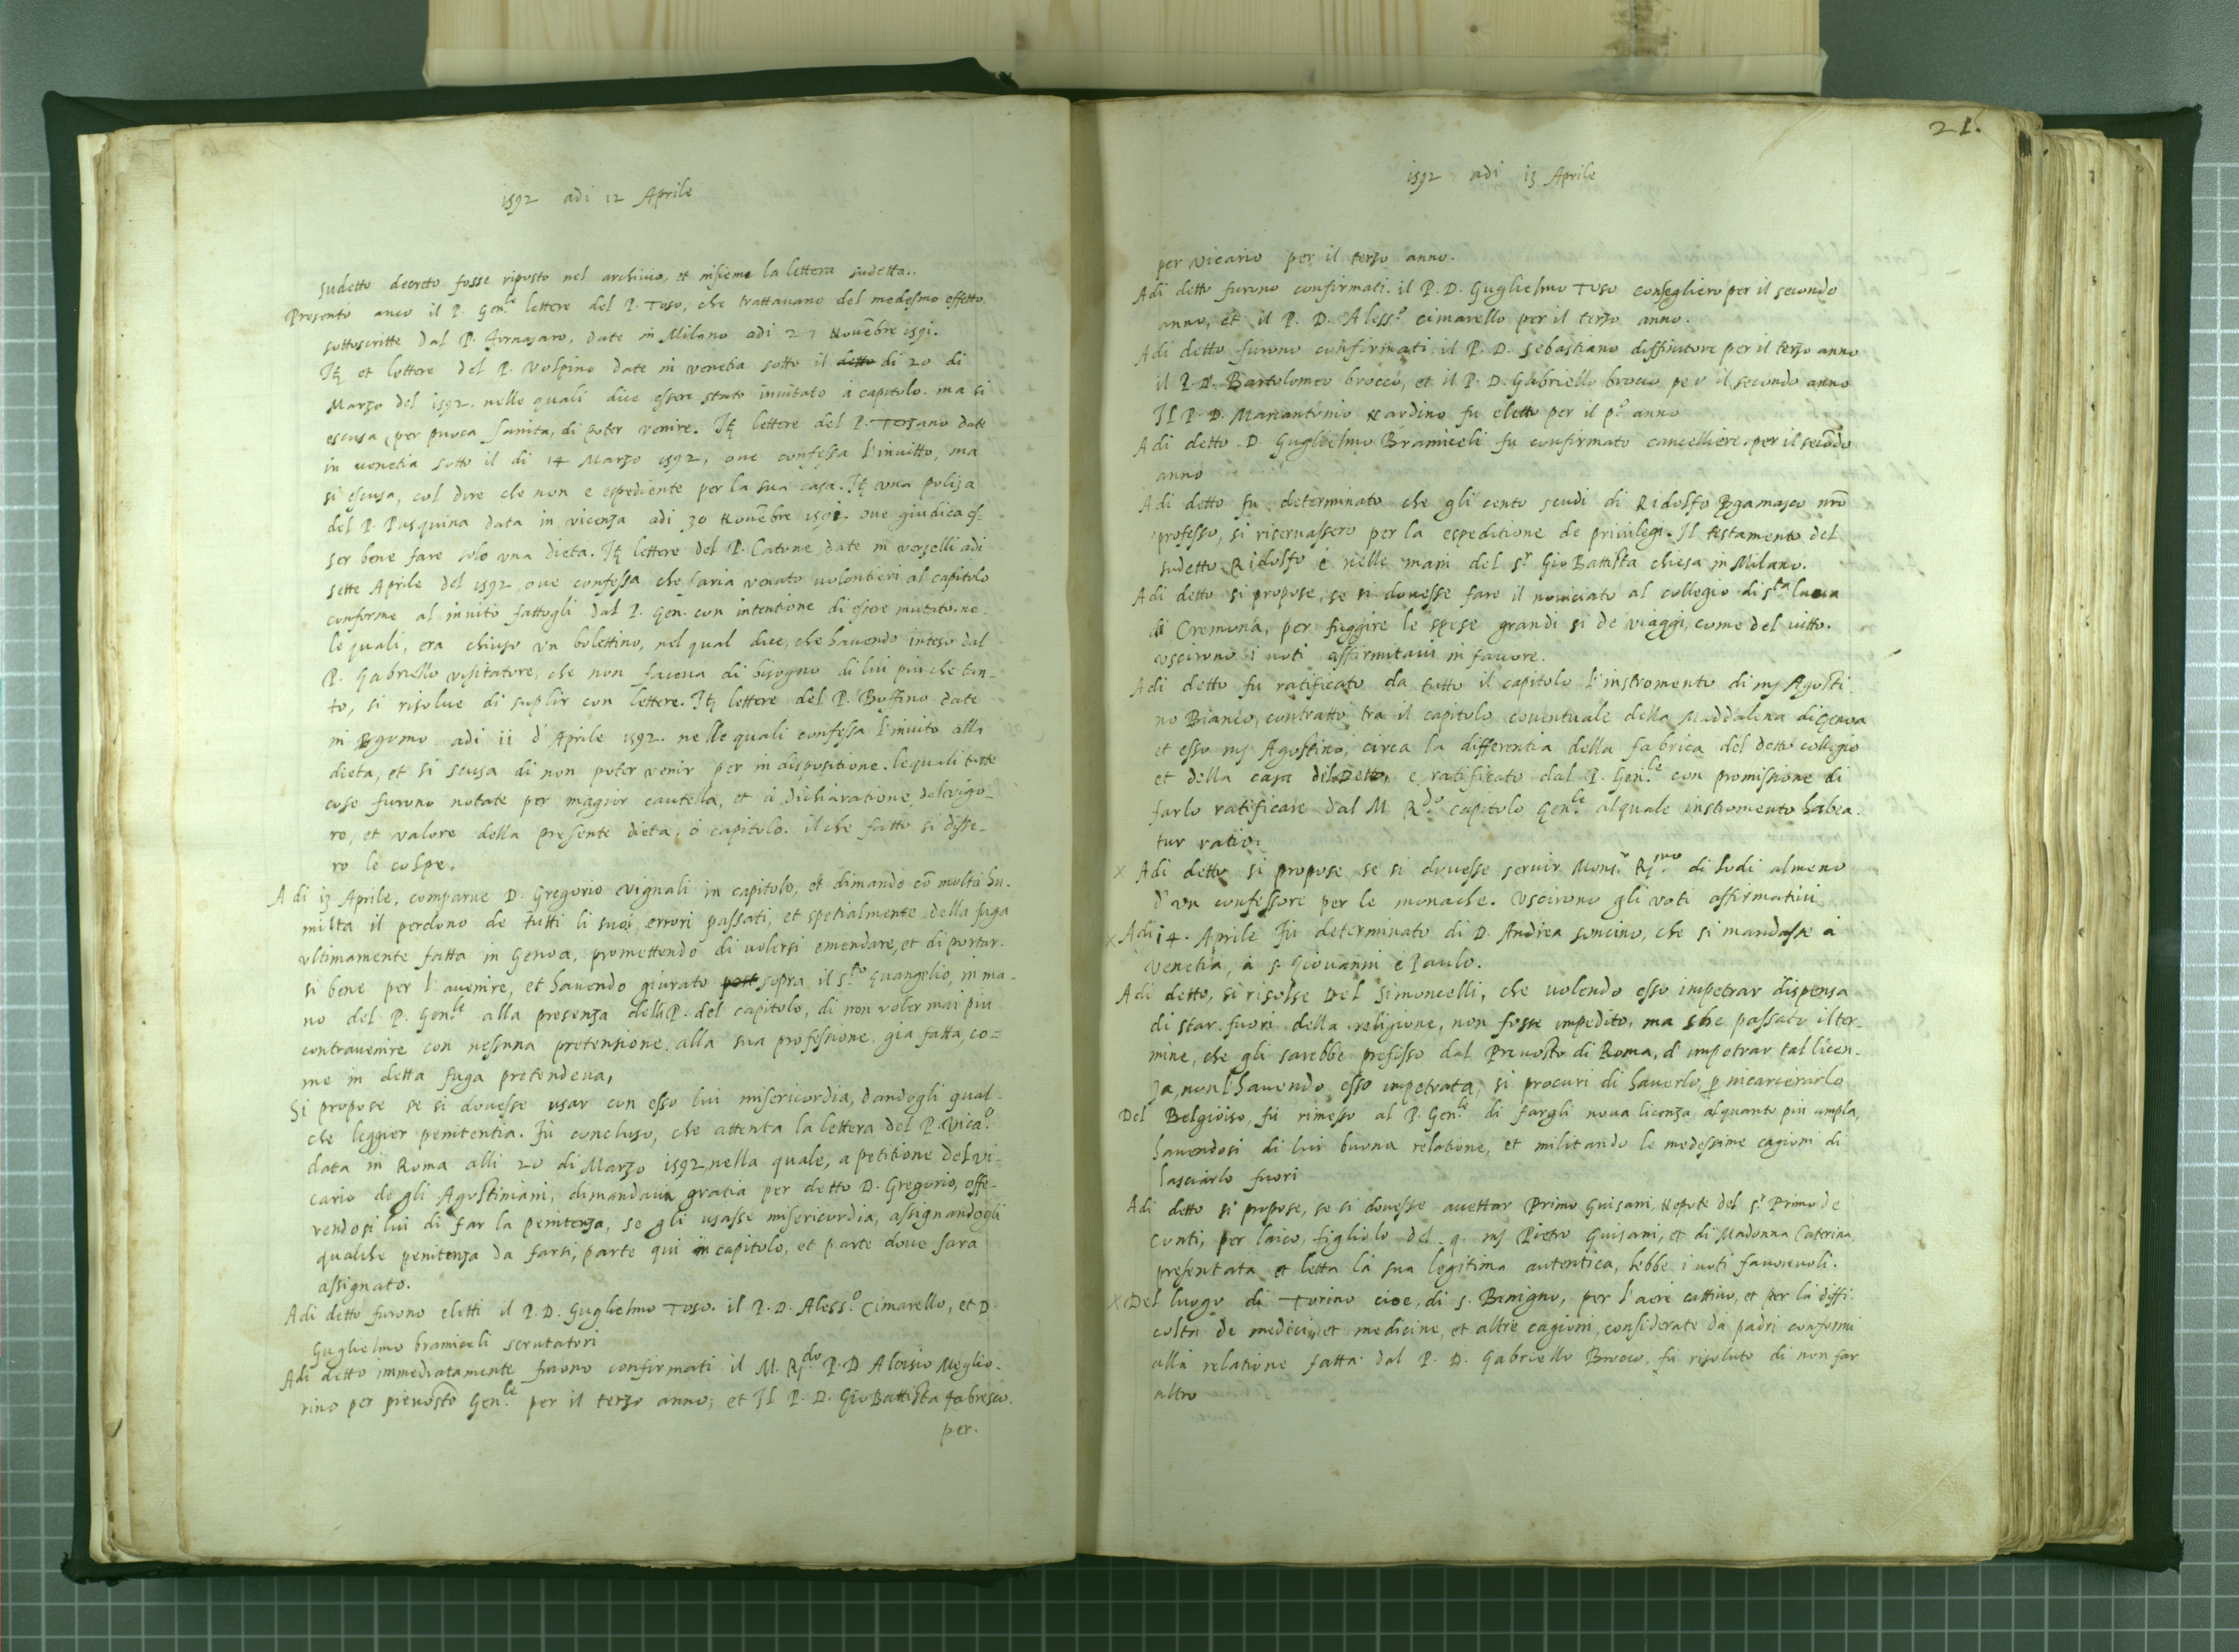 1592 adi 12 Aprile
sudetto decreto fosse riposto nel archivio, et insieme la lettera sudetta.
Presento anco il P. Gen.le lettere del P. Toso, che trattauano del medesmo effetto
sottoscritte dal P. Fornasaro, date in Milano adi 27 Nouēbre 1591.
Itē et lettere del P. Volpino date in venetia sotto il detto di 20 di
Marzo del 1592. nelle quali dice essere stato inuitato à capitolo. ma si
escusa per puoca sanita, di poter venire. Itē lettere del P. Terzano date
in venetia sotto il di 14 Marzo 1592, oue confessa l'inuitto, ma
si escusa, col dire che non e espediente per la sua casa. Itē vna poliza
del P. Pasquina data in vicenza adi 30 Nouēbre 1591, oue giudica es-
ser bene fare solo vna dieta. Itē lettere del P. Catone date in verselli adi
sette Aprile del 1592 oue confessa che saria venuto uolontieri al capitolo
conforme al inuito fattogli dal P. Gen. con intentione di essere mutato. ne-
le quali, era chiuso vn bolettino, nel qual dice, che hauendo inteso dal
P. Gabriello visitatore, che non faceua di bisogno di lui piu che tan-
to, si risolue di suplir con lettere. Itē lettere del P. Boffino date
in Bgomo adi 11 d'Aprile 1592. nelle quali confessa l'inuito alla
dieta, et si scusa di non poter venir per in dispositione. le quali tutte
cose furono notate per magior cautella, et à dichiaratione, del uigo-
ro, et valore della presente dieta, ò capitolo. il che fatto si disse-
ro le colpe.
A di 13 Aprile, comparue D. Gregorio vignali in capitolo, et dimando cō molta hu-
milta il perdono de tutti li suoi errori passati, et spetialmente della fuga
vltimamente fatta in Genoa, promettendo di uolersi emendare, et di portar-
si bene per l'auenire, et hauendo giurato post sopra il s.to Euangelio, in ma-
no del P. Gen.le alla presenza delli P. del capitolo, di non voler mai piu
contrauenire con nessuna pretensione alla sua professione gia fatta, co=
me in detta fuga pretendeua,
Si propose se si douesse usar con esso lui misericordia, dandogli qual-
che leggier penitentia. Fù concluso, che attenta la lettera del P. Vica.o
data in Roma alli 20 di Marzo 1592 nella quale, a petitione del vi-
cario de gli Agostiniani, dimandaua gratia per detto D. Gregorio, offe-
rendosi lui di far la penitenza, se gli usasse misericordia, assignandogli
qualche penitenza da farsi, parte qui in capitolo, et parte doue sara
assignato.
Adi detto furono eletti il P. D. Guglielmo Toso. il P. D. Aless.o Cimarello, et D.
Guglielmo bramiceli scrutatori
Adi detto immediatamente furono confirmati il M. R.do P. D. Aloisio Meglio-
rino per preuosto Gen.le per il terzo anno, et Il P. D. Gio Battista fabresco.
per.
21.
1592 adi 13 Aprile
per vicario per il terzo anno.
Adi detto furono confirmati. il P. D. Guglielmo Toso consegliero per il secondo
anno, et il P. D. Aless.o cimarello per il terzo anno.
Adi detto furono confirmati il P. D. sebastiano diffinitore per il terzo anno
il P. D. Bartolomeo brocco, et il P. D. Gabriello brocco per il secondo anno
Il P. D. Marcantonio Nardino fu eletto per il p.o anno
Adi detto D. Guglielmo Bramiceli fu confirmato cancelliere. per il secōdo
anno
Adi detto fu determinato che gli cento scudi di Ridolfo Bgamasco nrō
professo, si riseruassero per la espeditione de priuilegi. Il testamento del
sudetto Ridolfo è nelle mani del s.r Gio Battista chiesa in Milano.
Adi detto si propose, se si douesse fare il nouiciato al collegio di s.ta lucia
di Cremona, per fuggire le spese grandi si de viaggi, come del vitto.
vscirono i uoti affirmitaui in fauore.
Adi detto fu ratificato da tutto il capitolo l'instromento di mj Agosti
no Bianco, contratto tra il capitolo conuentuale della Maddalena di Genoa
et esso mj Agostino, circa la differentia della fabrica del detto collegio
et della casa del detto, e ratificato dal P. Gen.le con promissione di
farlo ratificare dal M. R.do capitolo Gen.le al quale instromento habea-
tur ratio.
x Adi detto si propose se si douesse seruir Mons.r R.smo di Lodi almeno
d'vn confessore per le monache. Vscirono gli voti affirmatiui
x Adi 14. Aprile Fù determinato di D. Andrea soncino, che si mandasse à
Venetia, à s. Giouanni e Paulo.
Adi detto, si risolse del Simoncelli, che uolendo esso impetrar dispensa
di star fuori della religione, non fosse impedito, ma che passato il ter-
mine, che gli sarebbe prefisso dal Preuosto di Roma, d'impetrar tal licen-
za, non l'hauendo esso impetrata, si procuri di hauerlo, p incarcerarlo
Del Belgioiso, fù rimesso al P. Gen.le di fargli noua licenza, alquanto piu ampla,
hauendosi di lui buona relatione, et militando le medessime cagioni di
lasciarlo fuori
Adi detto si propose, se si douesse accettar Primo Guisani, Nepote del s.r Primo de
Conti, per laico, figliolo del q. mj Pietro Guisani, et di Madonna Caterina,
presentata et letta la sua legitima autentica, hebbe i uoti fauoreuoli.
x Del luogo di Torino cioe, di s. Benigno, per l'aere cattiuo, et per la diffi-
colta de medici, et medicine, et altre cagioni, considerate da padri conformi
alla relatione fatta dal P. D. Gabriello Brocco, fù risoluto di non far
altro